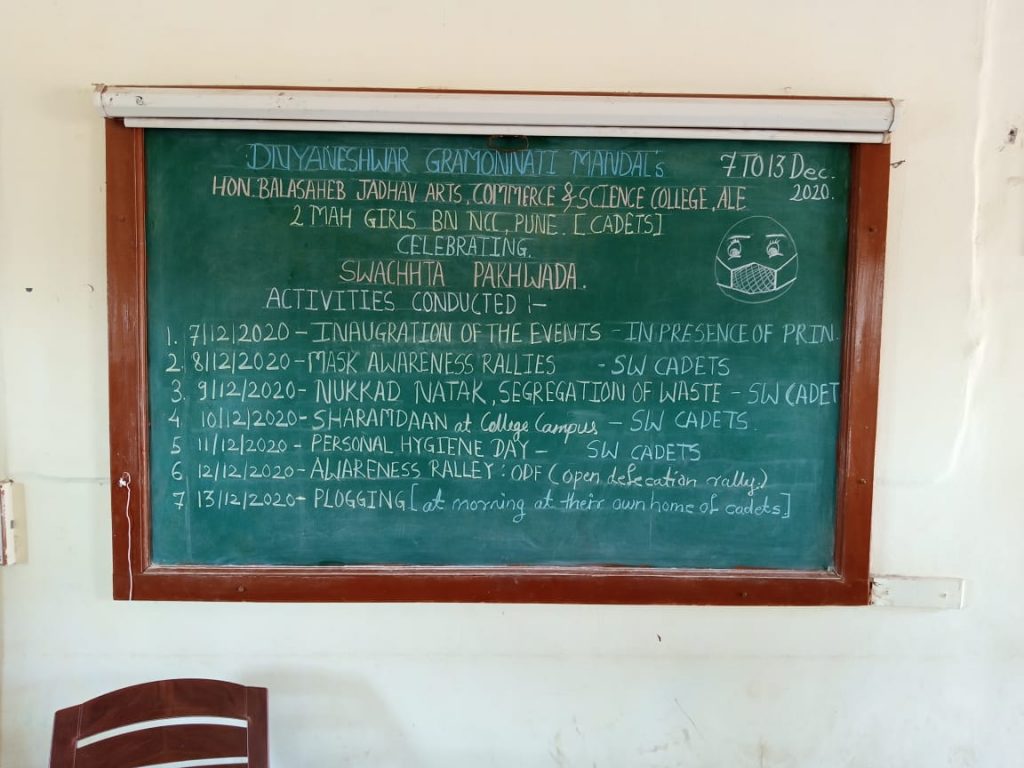 DNYANESHWAR GRAMONNATI MANDAL's
7 TO 13 Dec. 2020.
HON. BALASAHEB JADHAV ARTS, COMMERCE & SCIENCE COLLEGE, ALE
2 MAH GIRLS BN NCC, PUNE. [CADETS]
CELEBRATING.
SWACHHTA PAKHWADA.
ACTIVITIES CONDUCTED :-
1. 7/12/2020 - INAUGRATION OF THE EVENTS - IN PRESENCE OF PRIN.
2. 8/12/2020 - MASK AWARENESS RALLIES - SW CADETS
3. 9/12/2020 - NUKKAD NATAK, SEGREGATION OF WASTE - SW CADET
4 10/12/2020 - SHARAMDAAN at College Campus - SW CADETS.
5 11/12/2020 - PERSONAL HYGIENE DAY - SW CADETS
6 12/12/2020 - AWARENESS RALLEY : ODF (open defecation rally.)
7 13/12/2020 - PLOGGING [at morning at their own home of cadets]